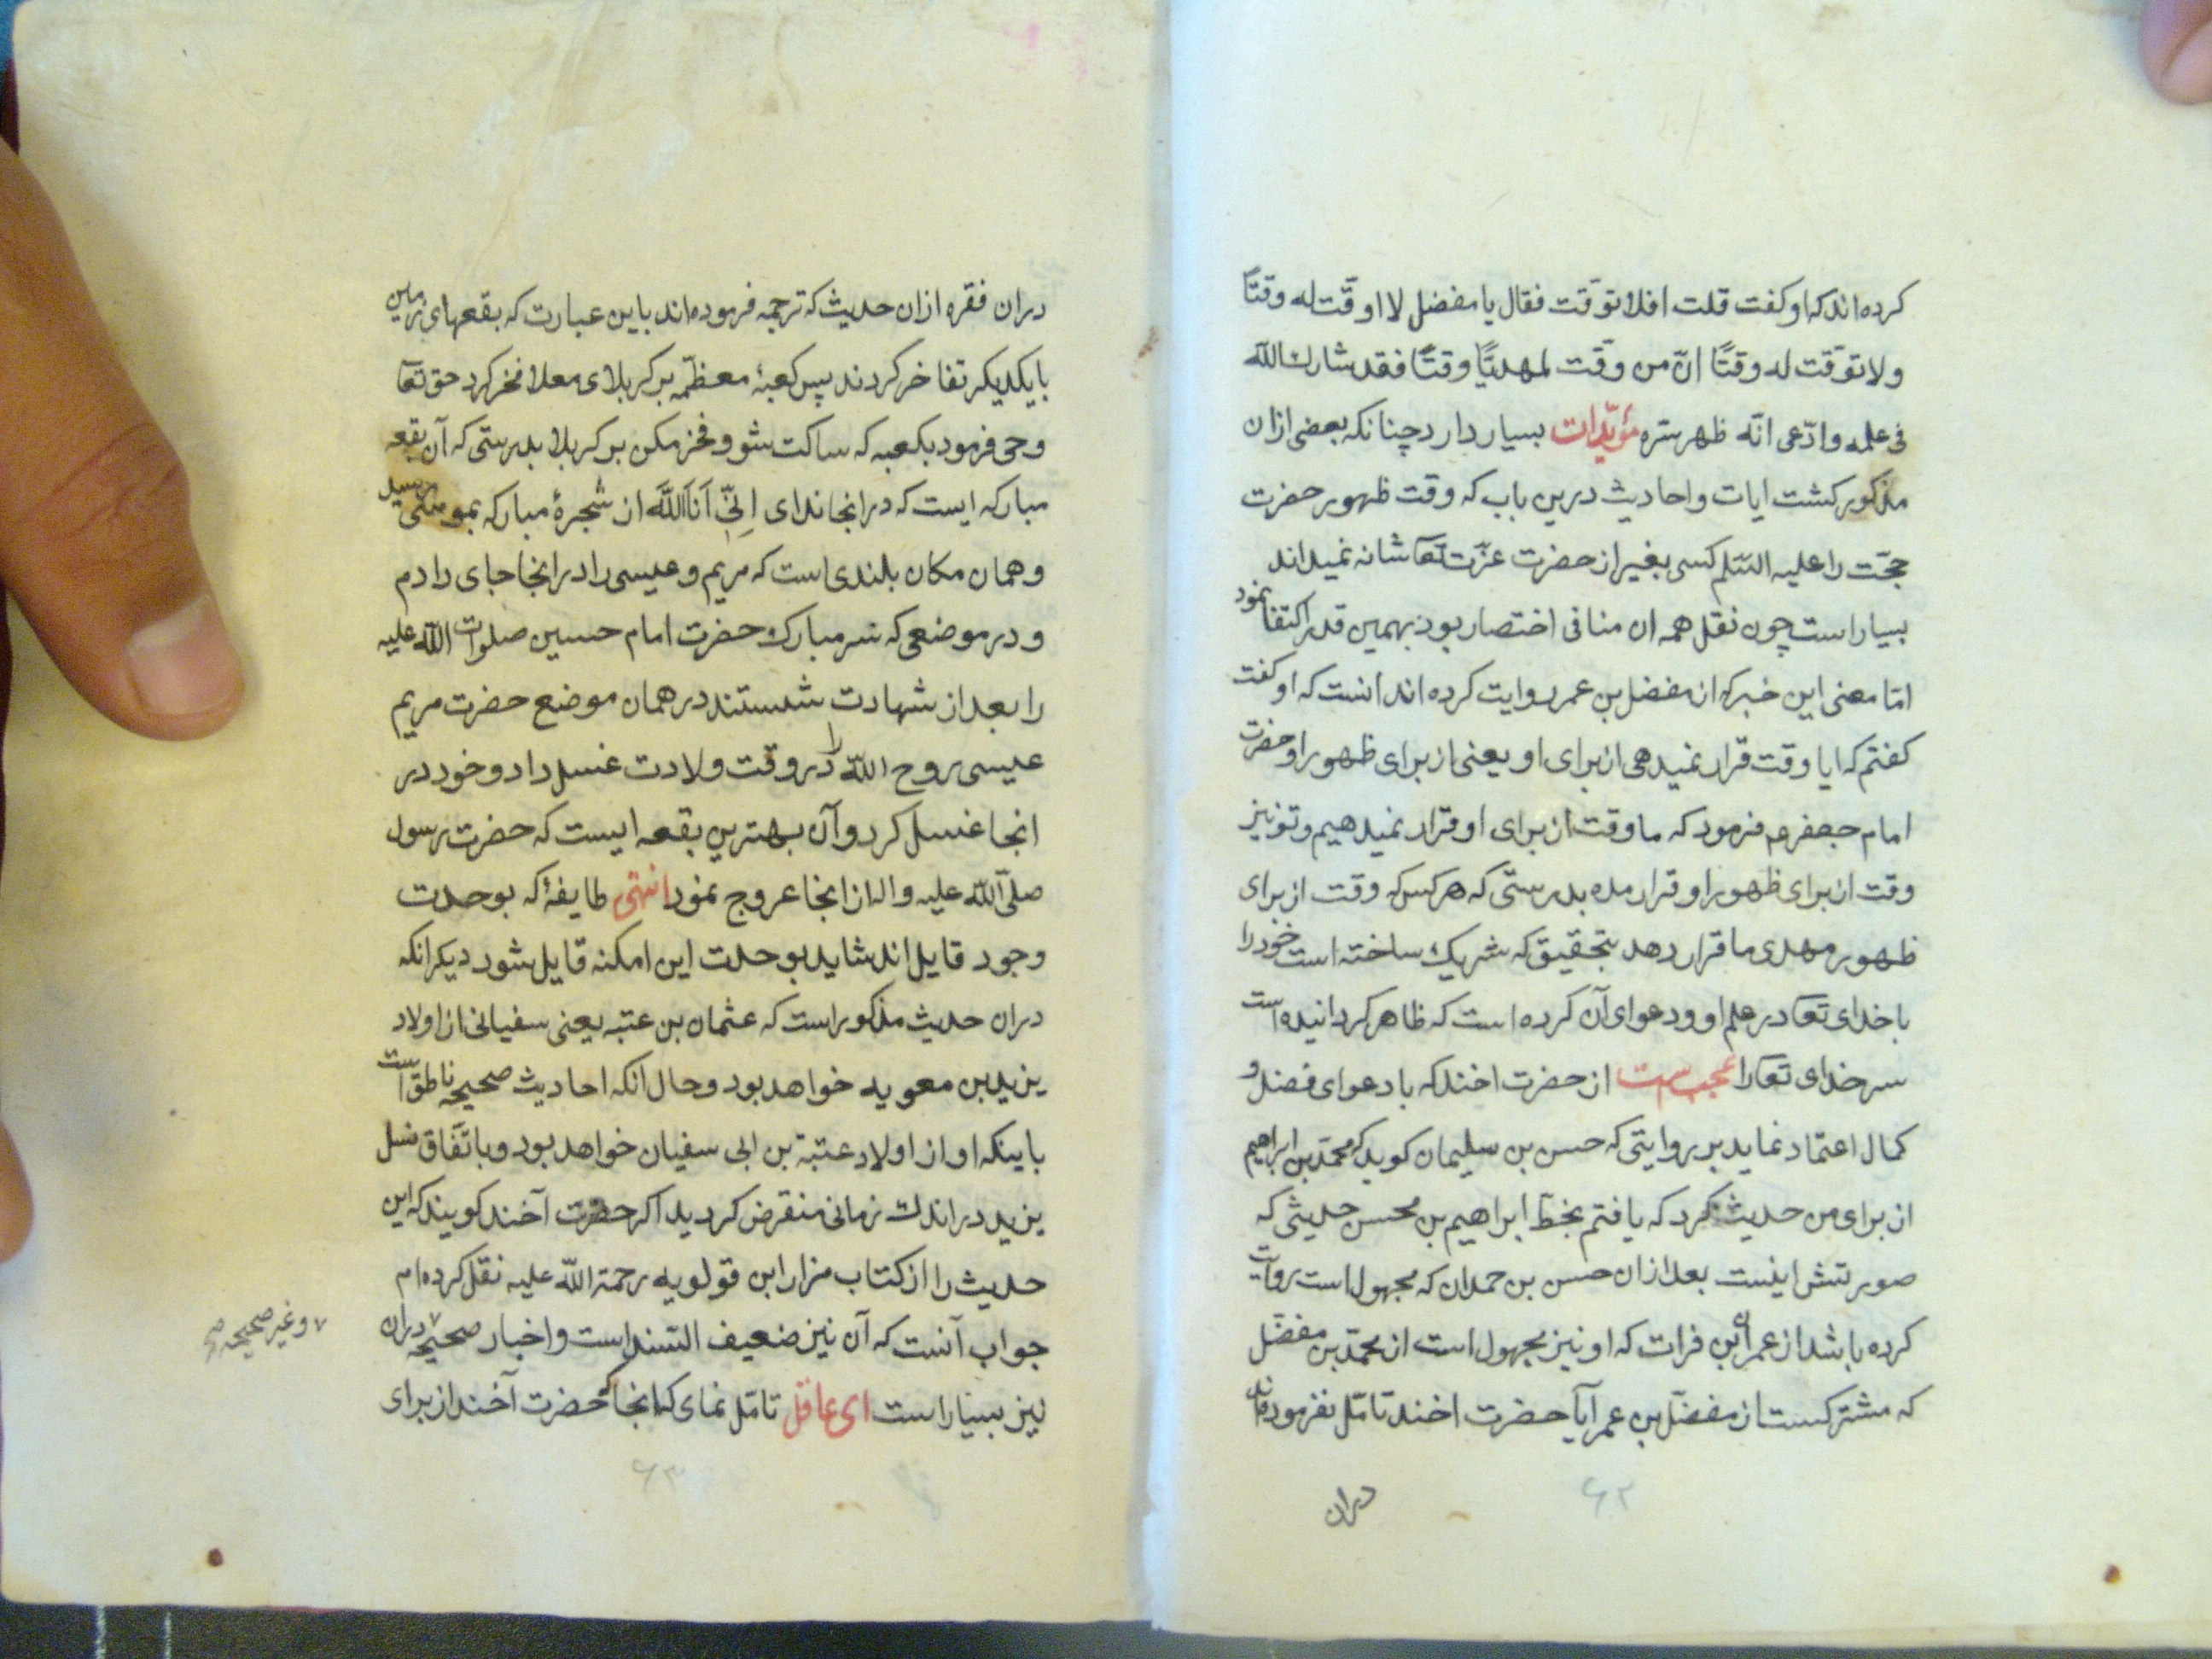 کرده‌اند که او کفت قلت افلا توقّت فقال یا مفضل لا اوقّت له وقتاً
ولا توقّت له وقتًا انّ من وقّت لمهدیّنا وقتًا فقد شارك الله
فی علمه وادّعی انّه ظهر سرّه مؤیّدات بسیار دارد چنانکه بعضی ازان
مذکور کشت ایات و احادیث درین باب که وقت ظهور حضرت
حجّت را علیه السّلم کسی بغیر از حضرت عزّت تعا شانه نمیداند
بسیار است چون نقل همه ان منافی اختصار بود بهمین قدر اکتفا نمود
امّا معنی این خبر که از مفضل بن عمر روایت کرده اند انست که او کفت
کفتم که ایا وقت قرار نمیدهی از برای او یعنی از برای ظهور او حضرت
امام جعفر ع فرمود که ما وقت از برای او قرار نمیدهیم و تو نیز
وقت از برای ظهور او قرار مده بدرستی که هر کس که وقت از برای
ظهور مهدی ما قرار دهد بتحقیق که شریك ساخته است خود را
با خدای تعا در علم او و دعوای آن کرده است که ظاهر کردانیده است
سر خدای تعا را عجبست از حضرت اخند که با دعوای فضل و
کمال اعتماد نماید بر روایتی که حسن بن سلیمان کوید که محمّد بن ابراهیم
از برای من حدیث کرد که یافتم بخطّ ابراهیم بن محسن حدیثی که
صورتش اینست بعد ازان حسن بن حمدان که مجهول است روایت
کرده باشد از عمر ابن فرات که او نیز مجهول است از محمّد بن مفضّل
که مشترکست از مفضّل بن عمر آیا حضرت اخند تامّل نفرموده‌اند
دران
۶۲
دران فقره ازان حدیث که ترجمه فرموده اند باین عبارت که بقعهای زمین
با یکدیکر تفاخر کردند پس کعبهٔ معظّمه بر کربلای معلا فخر کرد حق تعا
وحی فرمود بکعبه که ساکت شو و فخر مکن بر کربلا بدرستی که آن بقعه
مبارکه ایست که در انجا ندای اِنّی اَنَا اللّٰه از شجرهٔ مبارکه بموسی رسید
و همان مکان بلندی است که مریم و عیسی را در انجا جای دادم
و در موضعی که سر مبارك حضرت امام حسین صلوات اللّه علیه
را بعد از شهادت شستند در همان موضع حضرت مریم
عیسی روح اللّه را در وقت ولادت غسل داد و خود در
انجا غسل کرد و آن بهترین بقعه ایست که حضرت رسول
صلّی اللّه علیه و اله از انجا عروج نمود انتهی طایفهٔ که بوحدت
وجود قایل اند شاید بوحدت این امکنه قایل شود دیکر انکه
دران حدیث مذکور است که عثمان بن عتبه یعنی سفیانی از اولاد
یزید بن معویه خواهد بود و حال انکه احادیث صحیحه ناطق است
باینکه او از اولاد عتبة بن ابی سفیان خواهد بود و باتّفاق نسل
یزید در اندك زمانی منقرض کردید اکر حضرت آخند کویند که این
حدیث را از کتاب مزار ابن قولویه رحمة اللّه علیه نقل کرده ام
جواب آنست که آن نیز ضعیف السّند است و اخبار صحیحه دران
و غیر صحیحه صح
نیز بسیار است ای عاقل تامّل نمای که انجا که حضرت آخند از برای
۶۳